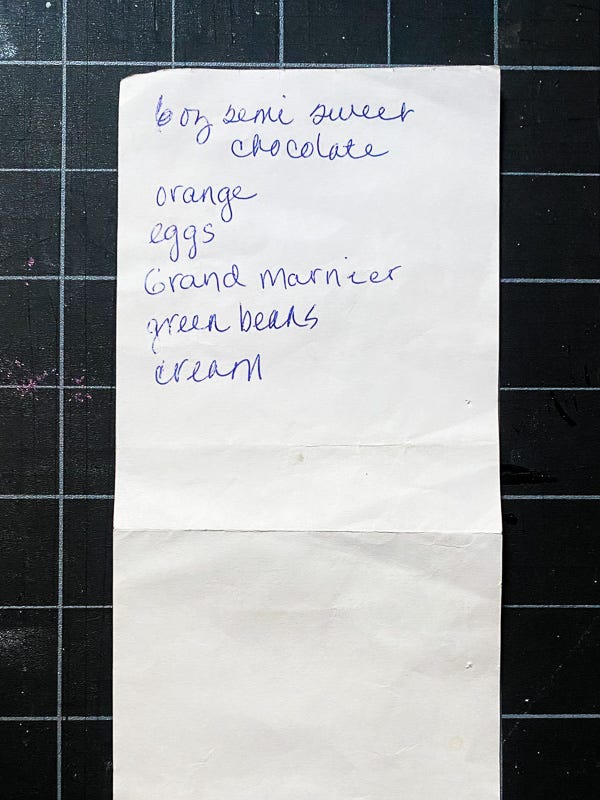 6 oz semi sweet
chocolate
orange
eggs
Grand Marnier
green beans
cream